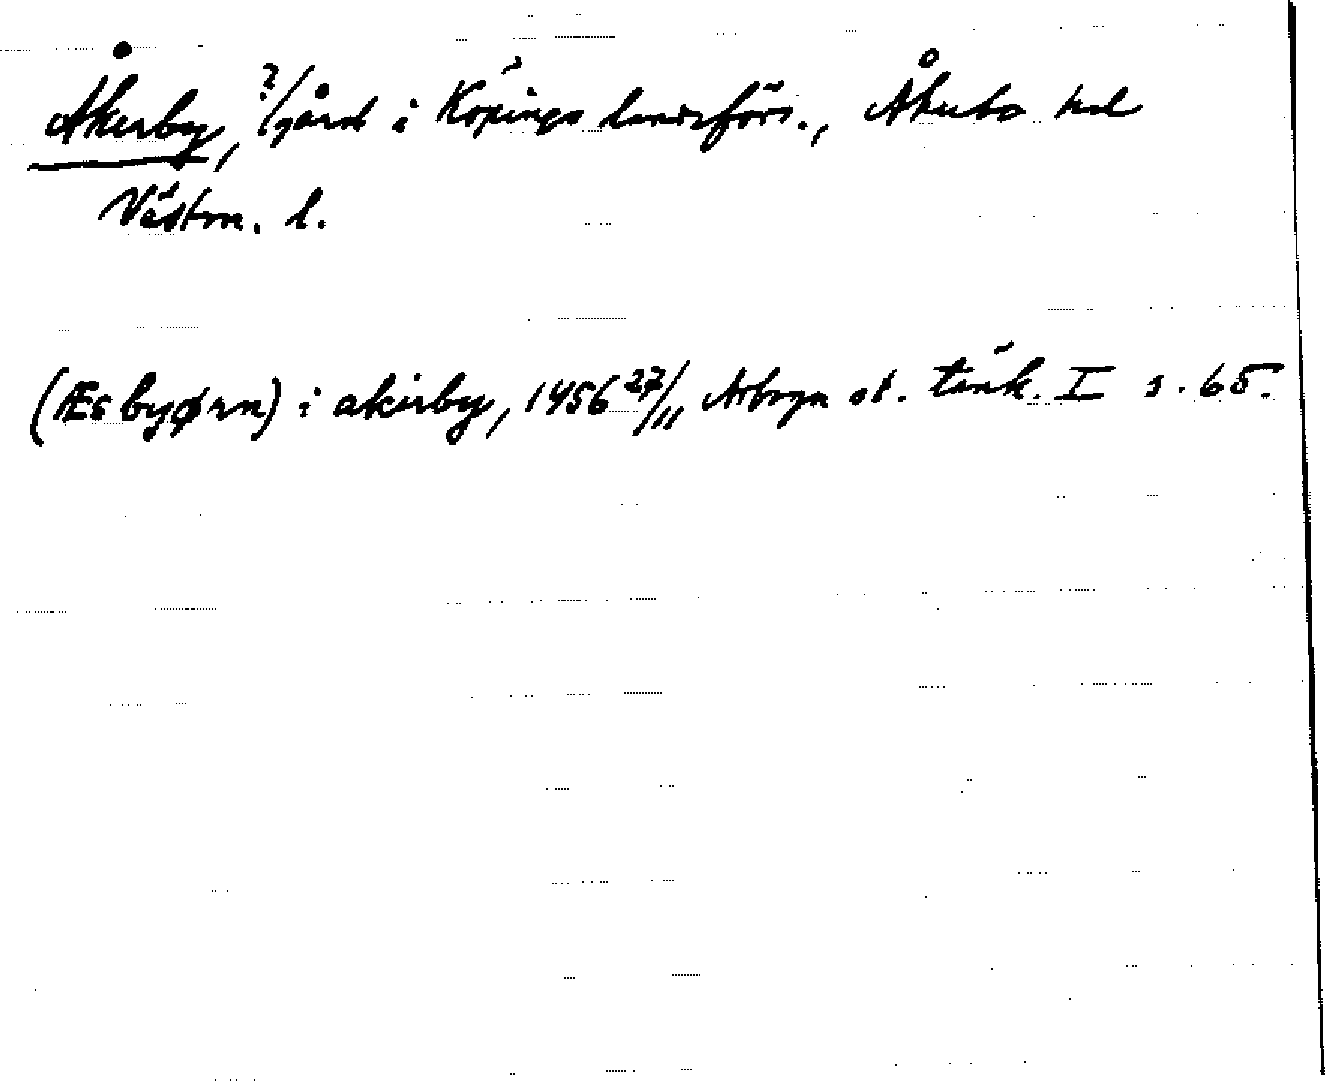 Åkerby, ?/gård i Köpings landsförs., Åkerbo hd
Västm. l.
(Æsbyørn) i akirby, 1456 27/11 Arboga st. tänk. I s. 65.